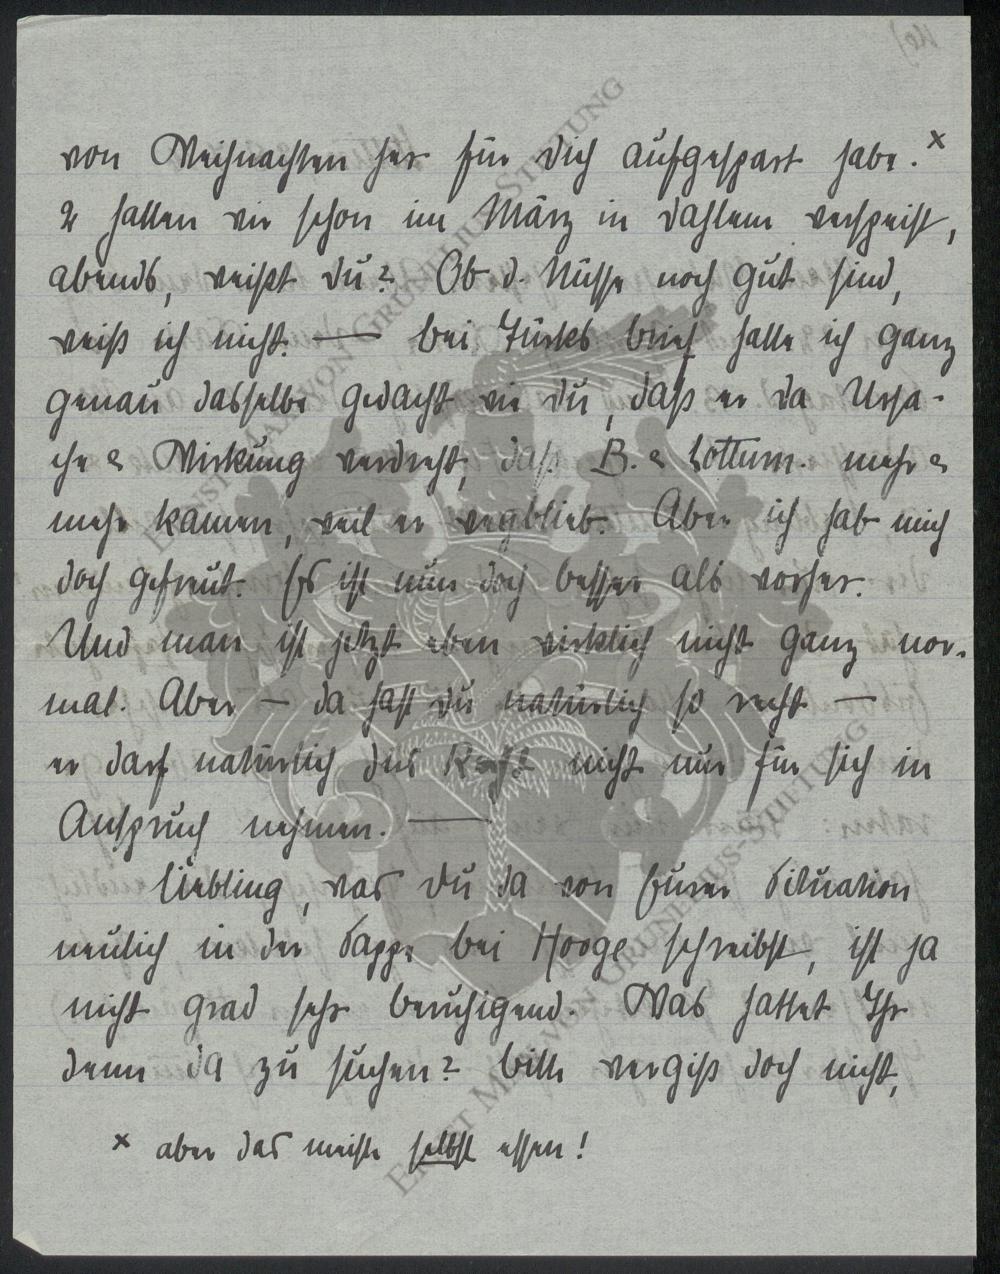 von Weihnachten her für Dich aufgespart habe. x
2 hatten wir schon im März in Dahlem verspeist,
abends, weißt Du? Ob d. Nüsse noch gut sind,
weiß ich nicht. — Bei Türks brief hatte ich ganz
genau dasselbe gedacht wie Du, daß er da Ursa-
che & Wirkung verdreht, daß B. & Lottum. mehr &
mehr kamen, weil er wegblieb. Aber ich hab mich
doch gefreut. Es ist nun doch besser als vorher.
Und man ist jetzt eben wirklich nicht ganz nor-
mal. Aber — da hast Du natürlich so recht —
er darf natürlich das Recht nicht nur für sich in
Anspruch nehmen. —
Liebling, was Du da von Eurer Situation
neulich in der Sappe bei Hooge schreibst, ist ja
nicht grad sehr beruhigend. Was hattet Ihr
denn da zu suchen? Bitte vergiß doch nicht,
x aber das meiste selbst essen!
ERNST MAX VON GRUNELIUS-STIFTUNG
ERNST MAX VON GRUNELIUS-STIFTUNG